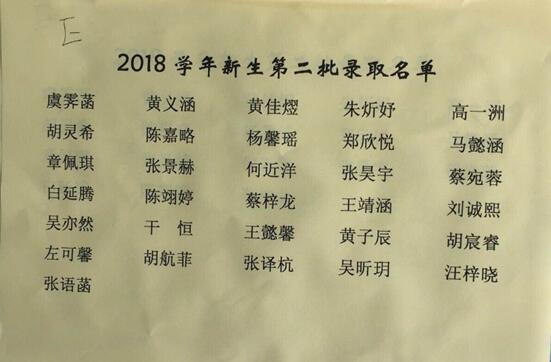 2018 学年新生第二批录取名单
虞霁菡 黄义涵 黄佳熠 朱炘妤 高一洲
胡灵希 陈嘉略 杨馨瑶 郑欣悦 马懿涵
章佩琪 张景赫 何近洋 张昊宇 蔡宛蓉
白延腾 陈翊婷 蔡梓龙 王靖涵 刘诚熙
吴亦然 干 恒 王懿馨 黄子辰 胡宸睿
左可馨 胡航菲 张译杭 吴昕玥 汪梓晓
张语菡